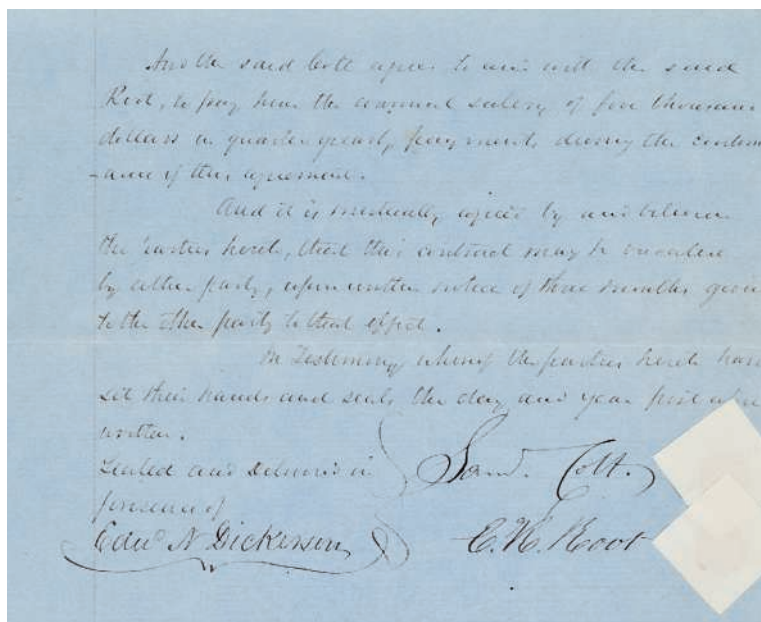 And the said Colt agrees to and with the said
Root, to pay him the annual salary of five thousand
dollars in quarter yearly payments during the continu
-ance of this agreement.
And it is mutually agreed by and between
the parties hereto, that this contract may be
by either party, upon written notice of three months given
to the other party to that effect.
In Testimony whereof the parties hereto have
set their hands and seals the day and year first above
written.
Sealed and Delivered in
presence of
Saml. Colt.
Edwd N Dickerson
E. K. Root